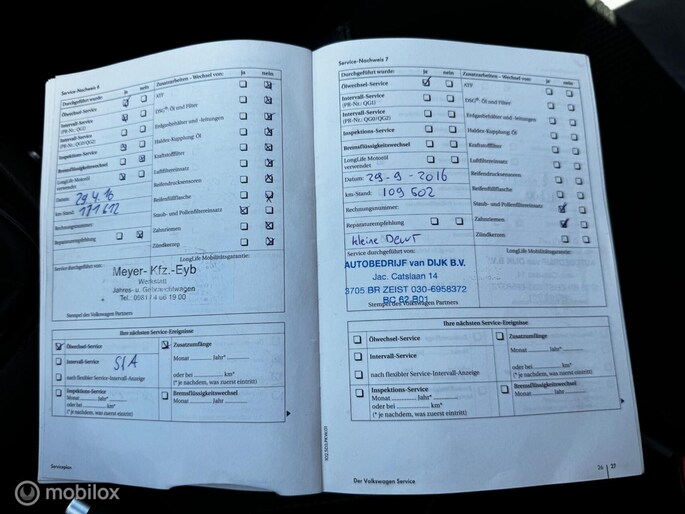 Service-Nachweis 6
Durchgeführt wurde: ja nein
Ölwechsel-Service
Intervall-Service
(PR-Nr.: QG1)
Intervall-Service
(PR-Nr.: QG0/QG2)
Inspektions-Service
Bremsflüssigkeitswechsel
LongLife Motoröl
verwendet
Datum: 29.4.16
km-Stand:
Rechnungsnummer:
Reparaturempfehlung
Zusatzarbeiten – Wechsel von: ja nein
ATF
DSG®-Öl und Filter
Erdgasbehälter und -leitungen
Haldex-Kupplung-Öl
Kraftstofffilter
Luftfiltereinsatz
Reifendrucksensoren
Reifenfüllflasche
Staub- und Pollenfiltereinsatz
Zahnriemen
Zündkerzen
Service durchgeführt von:
LongLife Mobilitätsgarantie:
Meyer- Kfz.-Eyb
Werkstatt
Jahres- u. Gebrauchtwagen
Stempel des Volkswagen Partners
Ihre nächsten Service-Ereignisse
Ölwechsel-Service
Intervall-Service
nach flexibler Service-Intervall-Anzeige
Inspektions-Service
Monat Jahr*
oder bei km*
(* je nachdem, was zuerst eintritt)
Zusatzumfänge
Monat Jahr*
oder bei km*
(* je nachdem, was zuerst eintritt)
Bremsflüssigkeitswechsel
Monat Jahr
Serviceplan
Service-Nachweis 7
Durchgeführt wurde: ja nein
Ölwechsel-Service
Intervall-Service
(PR-Nr.: QG1)
Intervall-Service
(PR-Nr.: QG0/QG2)
Inspektions-Service
Bremsflüssigkeitswechsel
LongLife Motoröl
verwendet
Datum: 29-9-2016
km-Stand: 109502
Rechnungsnummer:
Reparaturempfehlung
kleine
Zusatzarbeiten – Wechsel von: ja nein
ATF
DSG®-Öl und Filter
Erdgasbehälter und -leitungen
Haldex-Kupplung-Öl
Kraftstofffilter
Luftfiltereinsatz
Reifendrucksensoren
Reifenfüllflasche
Staub- und Pollenfiltereinsatz
Zahnriemen
Zündkerzen
Service durchgeführt von:
LongLife Mobilitätsgarantie:
AUTOBEDRIJF van DIJK B.V.
Jac. Catslaan 14
3705 BR ZEIST 030-6958372
BC 62.B01
Stempel des Volkswagen Partners
Ihre nächsten Service-Ereignisse
Ölwechsel-Service
Intervall-Service
nach flexibler Service-Intervall-Anzeige
Inspektions-Service
Monat Jahr*
oder bei km*
(* je nachdem, was zuerst eintritt)
Zusatzumfänge
Monat Jahr*
oder bei km*
(* je nachdem, was zuerst eintritt)
Bremsflüssigkeitswechsel
Monat Jahr
Der Volkswagen Service
26 27
mobilox